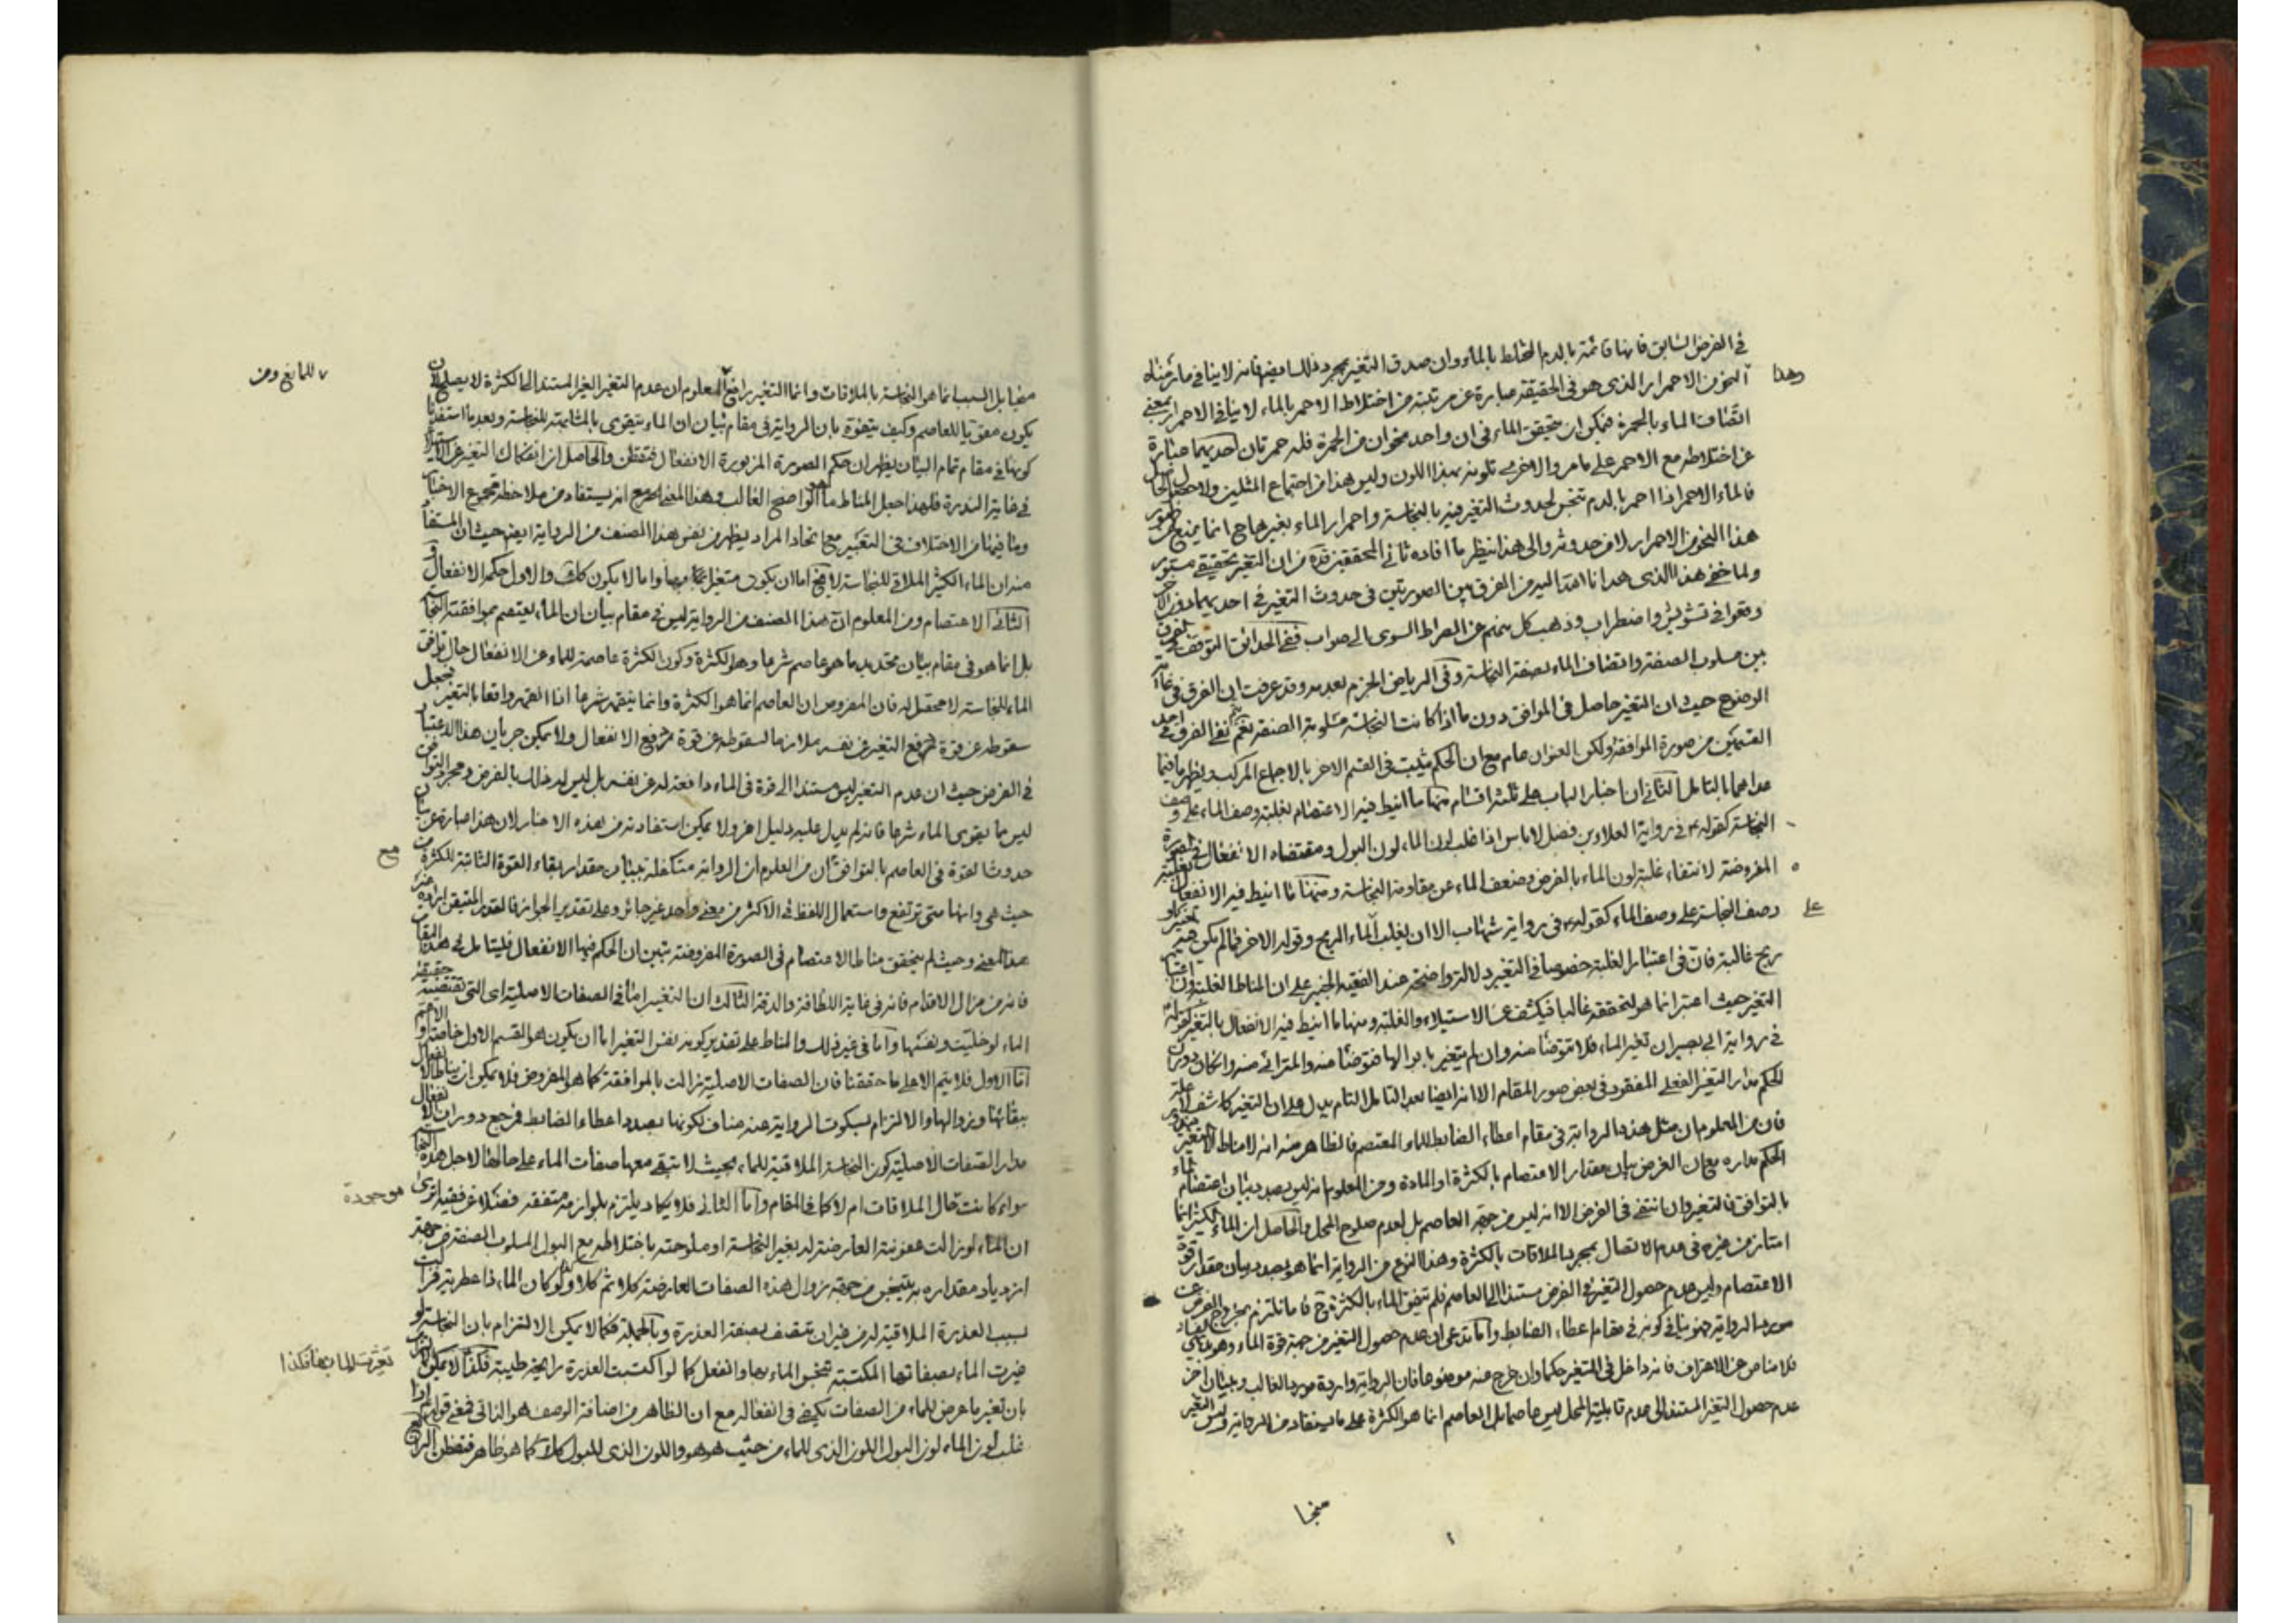 في الفرض السابق فانها قائمة بالدم المختلط بالماء وان صدق التغير بمجرد ذلك ايضا فانه لا ينافي ما
وهذا
النحو من الاحمرار الذي هو في الحقيقة عبارة عن مرتبته من اختلاط الاحمر بالماء لا ينافي الاحمرار بمعنى
اتصاف الماء بالحمرة فيمكن ان يتحقق الماء في ان واحد نحوان من الحمرة فله حمرتان احديهما عبارة
عن اختلاطه مع الاحمر على ما مر والاخرى تلونه بهذا اللون وليس هذا من اجتماع المثلين
فالماء الاحمر اذا احمر بالدم تنجس لحدوث التغير فيه بالنجاسة واحمرار الماء بغيرها ح انما يمنع من ظهور
هذا النحو من الاحمرار لا من حدوثه والى هذا ينظر ما افاده ثاني المحققين قده من ان التغير تحقيقي مستور
ولما خفي هذا الذي هدانا الله اليه من الفرق بين الصورتين في حدوث التغير في احديهما دون الاخرى
وقعوا في تشويش واضطراب وذهب كل منهم عن الصراط السوي الى صواب ففي الحدائق التوقف في الفرق
بين مسلوب الصفة واتصاف الماء بصفة النجاسة وفي الرياض الجزم بعدمه وقد عرفت ان الفرق في غاية
الوضوح حيث ان التغير حاصل في الموافق دون ما اذا كانت النجاسة مسلوبة الصفة نعم يتم نفي الفرق في احد
القسمين من صورة الموافقة ولكن العنوان عام مع ان الحكم يثبت في القسم الاخر بالاجماع المركب ويظهر ما فيما
عداهما بالتامل الثاني ان اخبار الباب على ثلثة اقسام منها ما انيط فيه الاعتصام بغلبة وصف الماء على وصف
النجاسة كقوله ع في رواية العلاء بن فضيل لا باس اذا غلب لون الماء لون البول ومقتضاه الانفعال في الصورة
المفروضة لانتفاء غلبة لون الماء بالفرض وضعف الماء عن مقاومة النجاسة ومنها ما انيط فيه الانفعال بغلبة
وصف النجاسة على وصف الماء كقوله ع في رواية شهاب الا ان يغلب الماء الريح وقوله الاخر فيما لم يكن فيه
على
ريح غالبة فان في اعتبار الغلبة خصوصا في التغير دلالة واضحة عند الفقيه الخبير على ان المناط الغلبة وان اعتبار
التغير حيث اعتبر انما هو لتحققه غالبا فيكشف عن الاستيلاء والغلبة ومنها ما انيط فيه الانفعال بالتغير كقوله
في رواية ابي بصير ان تغير الماء فلا تتوضا منه وان لم يتغير بابوالها فتوضا منه والمترائى منه وان كان دوران
الحكم مدار التغير الفعلي المفقود في بعض صور المقام الا انه ايضا بعد التامل التام يدل على ان التغير كاشف
فان من المعلوم ان مثل هذه الرواية في مقام اعطاء الضابط للماء المعتصم فالظاهر منه انه لا مناط الا التغير
الحكم مداره مع ان الغرض بيان مقدار الاعتصام بالكثرة او المادة ومن المعلوم انه ليس بصدد بيان اعتصام الماء
بالتوافق فالتغير وان انتفى في الفرض الا انه ليس من جهة العاصم بل لعدم صلوح المحل والحاصل ان الماء الكثير انما
امتاز من غيره في عدم الانفعال بمجرد الملاقات بالكثرة وهذا النوع من الرواية انما هو بصدد بيان مقدار قوة
الاعتصام وليس عدم حصول التغير في الفرض مستندا الى العاصم فلم تتفق الماء بالكثرة ح فاما نلتزم بخروج الفرض عن
مورد الرواية وهو ينافي كونه في مقام اعطاء الضابط واما ندعي ان عدم حصول التغير من جهة قوة الماء وهو
فلا مناص عن الاعتراف بانه داخل في المتغير حكما وان خرج منه موضوعا فان الرواية واردة مورد الغالب وببيان اخر
عدم حصول التغير المستند الى عدم قابلية المحل ليس عاصما بل العاصم انما هو الكثرة على ما يستفاد من الرواية وليس التغير
منجا
منجا بل السبب انما هو النجاسة بالملاقات وانما التغير رافع المعلوم ان عدم التغير الغير المستند الى الكثرة لا يصلح لان
للمانع ومن
يكون مقويا للعاصم وكيف يتفوه بان الرواية في مقام بيان ان الماء يتقوى بالمشابهة للنجاسة وبعد ما استفدنا
كونها في مقام تمام البيان يظهر ان حكم الصورة المزبورة الانفعال فتفطن والحاصل ان انفكاك التغير عن الاستيلاء
في غاية الندرة فلهذا جعل المناط ما هو الواضح الغالب وهذا المعنى مع انه يستفاد من ملاحظة مجموع الاخبار
وما فيها من الاختلاف في التعبير مع اتحاد المراد يظهر من نفس هذا الصنف من الرواية ايضا حيث ان المستفاد
منه ان الماء الكثير الملاقي للنجاسة لا يخ اما ان يكون متغيرا بها واما لا يكون كذلك والاول حكمه الانفعال و
الثاني الاعتصام ومن المعلوم ان هذا الصنف من الرواية ليس في مقام بيان ان الماء يعتصم بموافقته النجاسة
بل انما هو في مقام بيان تحديد ما هو عاصم شرعا وهو الكثرة وكون الكثرة عاصمة للماء عن الانفعال حال توافق
الماء للنجاسة لا محصل له فان المفروض ان العاصم انما هو الكثرة وانما ينقهر شرعا اذا انقهر واقعا بالتغير فجعل
سقوطه عن قوة رفع التغير عن نفسه ملازما لسقوطه عن قوة رفع الانفعال ولا يمكن جريان هذا الاعتبار
في الفرض حيث ان عدم التغير ليس مستندا الى قوة في الماء دافعة له عن نفسه بل ليس له ذلك بالفرض ومجرد التوافق
ليس مما يقوى الماء شرعا فانه لم يدل عليه دليل اخر ولا يمكن استفادته من هذه الاخبار لان هذا عبارة عن بيان
حدوث القوة في العاصم بالتوافق ان من المعلوم ان الرواية متكفلة ببيان مقدار بقاء القوة الثابتة للكثرة من
مع
حيث هي وانها متى ترتفع واستعمال اللفظ في الاكثر من معنى واحد غير جائز وعلى تقدير الجواز فالقدر المتيقن ارادة
هذا المعنى وحيث لم يتحقق مناط الاعتصام في الصورة المفروضة تبين ان الحكم فيها الانفعال فليتامل في هذا المقام
فانه من مزال الاقدام فانه في غاية اللطافة والدقة الثالث ان التغير اما في الصفات الاصلية اي التي تقتضيها حقيقة
الماء لو خليت ونفسها واما في غير ذلك والمناط على تقدير كونه نفس التغير اما ان يكون هو القسم الاول خاصة او الاعم
اما الاول فلا يتم الا على ما حققنا فان الصفات الاصلية زالت بالموافقة كما هو المفروض فلا يمكن ان يناط الانفعال
ببقائها وزوالها والالتزام بسكوت الرواية عنه مناف لكونها بصدد اعطاء الضابط فمرجع دوران الانفعال
مدار الصفات الاصلية كون النجاسة الملاقية للماء بحيث لا تبقى معها صفات الماء على حالها لاجل هذه النجاسة
سواء كانت حال الملاقات ام لا كما في المقام واما الثاني فلا يكاد يلتزم بلوازمه متفقه فضلا عن فقيه ترى
موجودة
ان الماء لو زالت عفونته العارضة له بغير النجاسة او ملوحته باختلاطه مع البول المسلوب الصفة من جهة
ازدياد مقداره به يتنجس من جهة زوال هذه الصفات العارضة كلا ثم كلا وكذا لو كان الماء ذا عطرية فزالت
بسبب العذرة الملاقية له من غير ان يتصف بصفة العذرة وبالجملة فكما لا يمكن الالتزام بان النجاسة لو
غيرت الماء بصفاتها المكتسبة تنجس الماء بها وانفعل كما لو اكتسبت العذرة رايحة طيبة فكذا لا يمكن الالتزام
تغيرت الماء بها فكذا
بان تغير ما عرض للماء من الصفات يكفي في انفعاله مع ان الظاهر من اضافة الوصف هو الذاتي فمعنى قوله ع اذا
غلب لون الماء لون البول اللون الذي للماء من حيث هو هو واللون الذي للبول كذلك كما هو ظاهر فتفطن الرابع